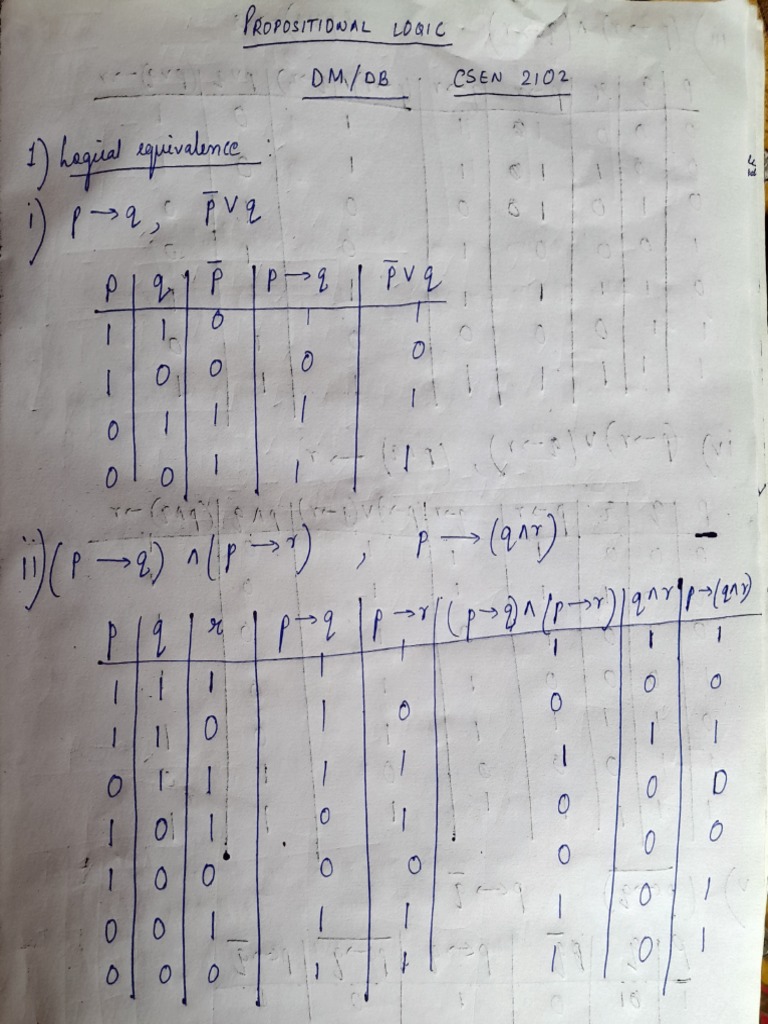 PROPOSITIONAL LOGIC
DM/DB CSEN 2102
1) Logical equivalence :
i) p → q, p̅ ∨ q
p | q | p̅ | p → q | p̅ ∨ q
1 | 1 | 0 | 1 | 1
1 | 0 | 0 | 0 | 0
0 | 1 | 1 | 1 | 1
0 | 0 | 1 | 1 | 1
ii) (p → q) ∧ (p → r) , p → (q∧r)
p | q | r | p → q | p → r | (p → q) ∧ (p → r) | q∧r | p → (q∧r)
1 | 1 | 1 | 1 | 1 | 1 | 1 | 1
1 | 1 | 0 | 1 | 0 | 0 | 0 | 0
0 | 1 | 1 | 1 | 1 | 1 | 1 | 1
1 | 0 | 1 | 0 | 1 | 0 | 0 | 0
1 | 0 | 0 | 0 | 0 | 0 | 0 | 0
0 | 0 | 1 | 1 | 1 | 1 | 0 | 1
0 | 0 | 0 | 1 | 1 | 1 | 0 | 1